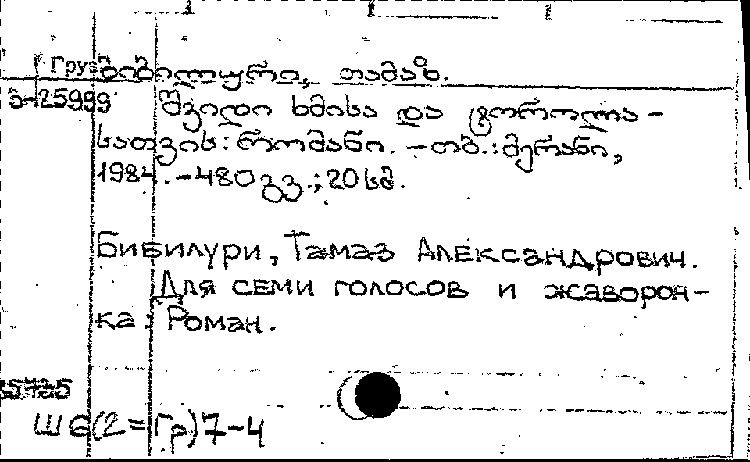 Груз ბიბილური, თამაზ.
ა-25999 შვიდი ხმისა და ტოროლა-
სათვის: რომანი. – თბ.: მერანი,
1984. – 480 გვ.; 20 სმ.
Бибилури, Тамаз Александрович.
Для семи голосов и жаворон-
ка: Роман.
Ш6(2=Гр)7-4